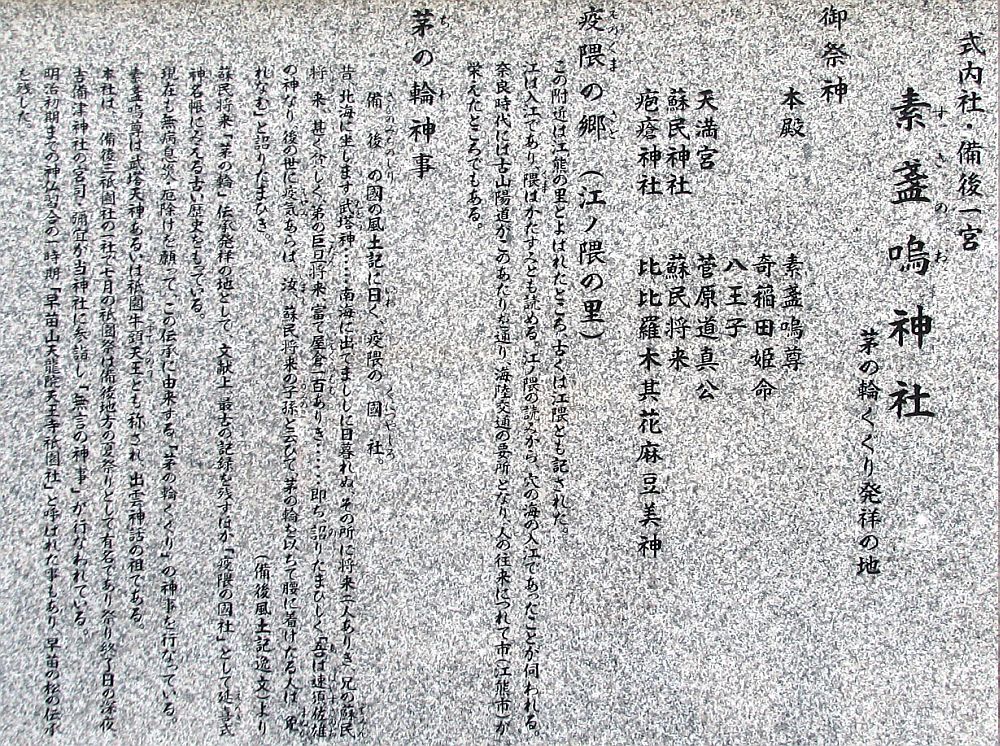 式内社・備後一宮
素盞嗚神社
すさのお
茅の輪くぐり発祥の地
御祭神
本殿 素盞嗚尊
奇稲田姫命
八王子
天満宮 菅原道真公
蘇民神社 蘇民将来
疱瘡神社 比比羅木其花麻豆美神
疫隈の郷(江ノ隈の里)
この附近は江熊の里とよばれたところ、古くは江隈とも記された。
江は入江であり、隈はかたすみとも読める。江ノ隈の読みから、穴の海の入江であったことが伺われる。
奈良時代には古山陽道がこのあたりを通り、海陸交通の要所となり人の往来につれて市(江熊市)が
栄えたところでもある。
茅の輪神事
備後の國の風土記に曰く、疫隈の國社。
昔、北海に坐します武塔神……南海に出でましに日暮れぬ、その所に将来二人ありき、兄の蘇民
将来、甚く貧しく、弟の巨旦将来、富て屋倉一百ありき……即ち詔りたまひしく「吾は速須佐雄
の神なり、後の世に疫気あらば、汝、蘇民将来の子孫と云ひて、茅の輪を以ちて腰に着けたる人は、免
れなむ」と詔りたまひき。 (備後風土記逸文)より
蘇民将来「茅の輪」伝承発祥の地として、文献上、最古の記録を残すほか「疫隈の國社」として延喜式
神名帳にみえる古い歴史をもっている。
現在も無病息災、厄除けを願って、この伝承に由来する「茅の輪くぐり」の神事を行なっている。
素盞嗚尊は武塔天神あるいは祇園牛頭天王とも称され、出雲神話の祖である。
本社は、備後三祇園社の一社で七月の祇園祭は備後地方の夏祭りとして有名であり、祭り終了日の深夜
吉備津神社の宮司・禰宜が当神社に参詣し「無言の神事」が行なわれている。
明治初期までの神仏習合の一時期「早苗山天龍院天王寺祇園社」と呼ばれた事もあり、早苗の松の伝承
を残した。